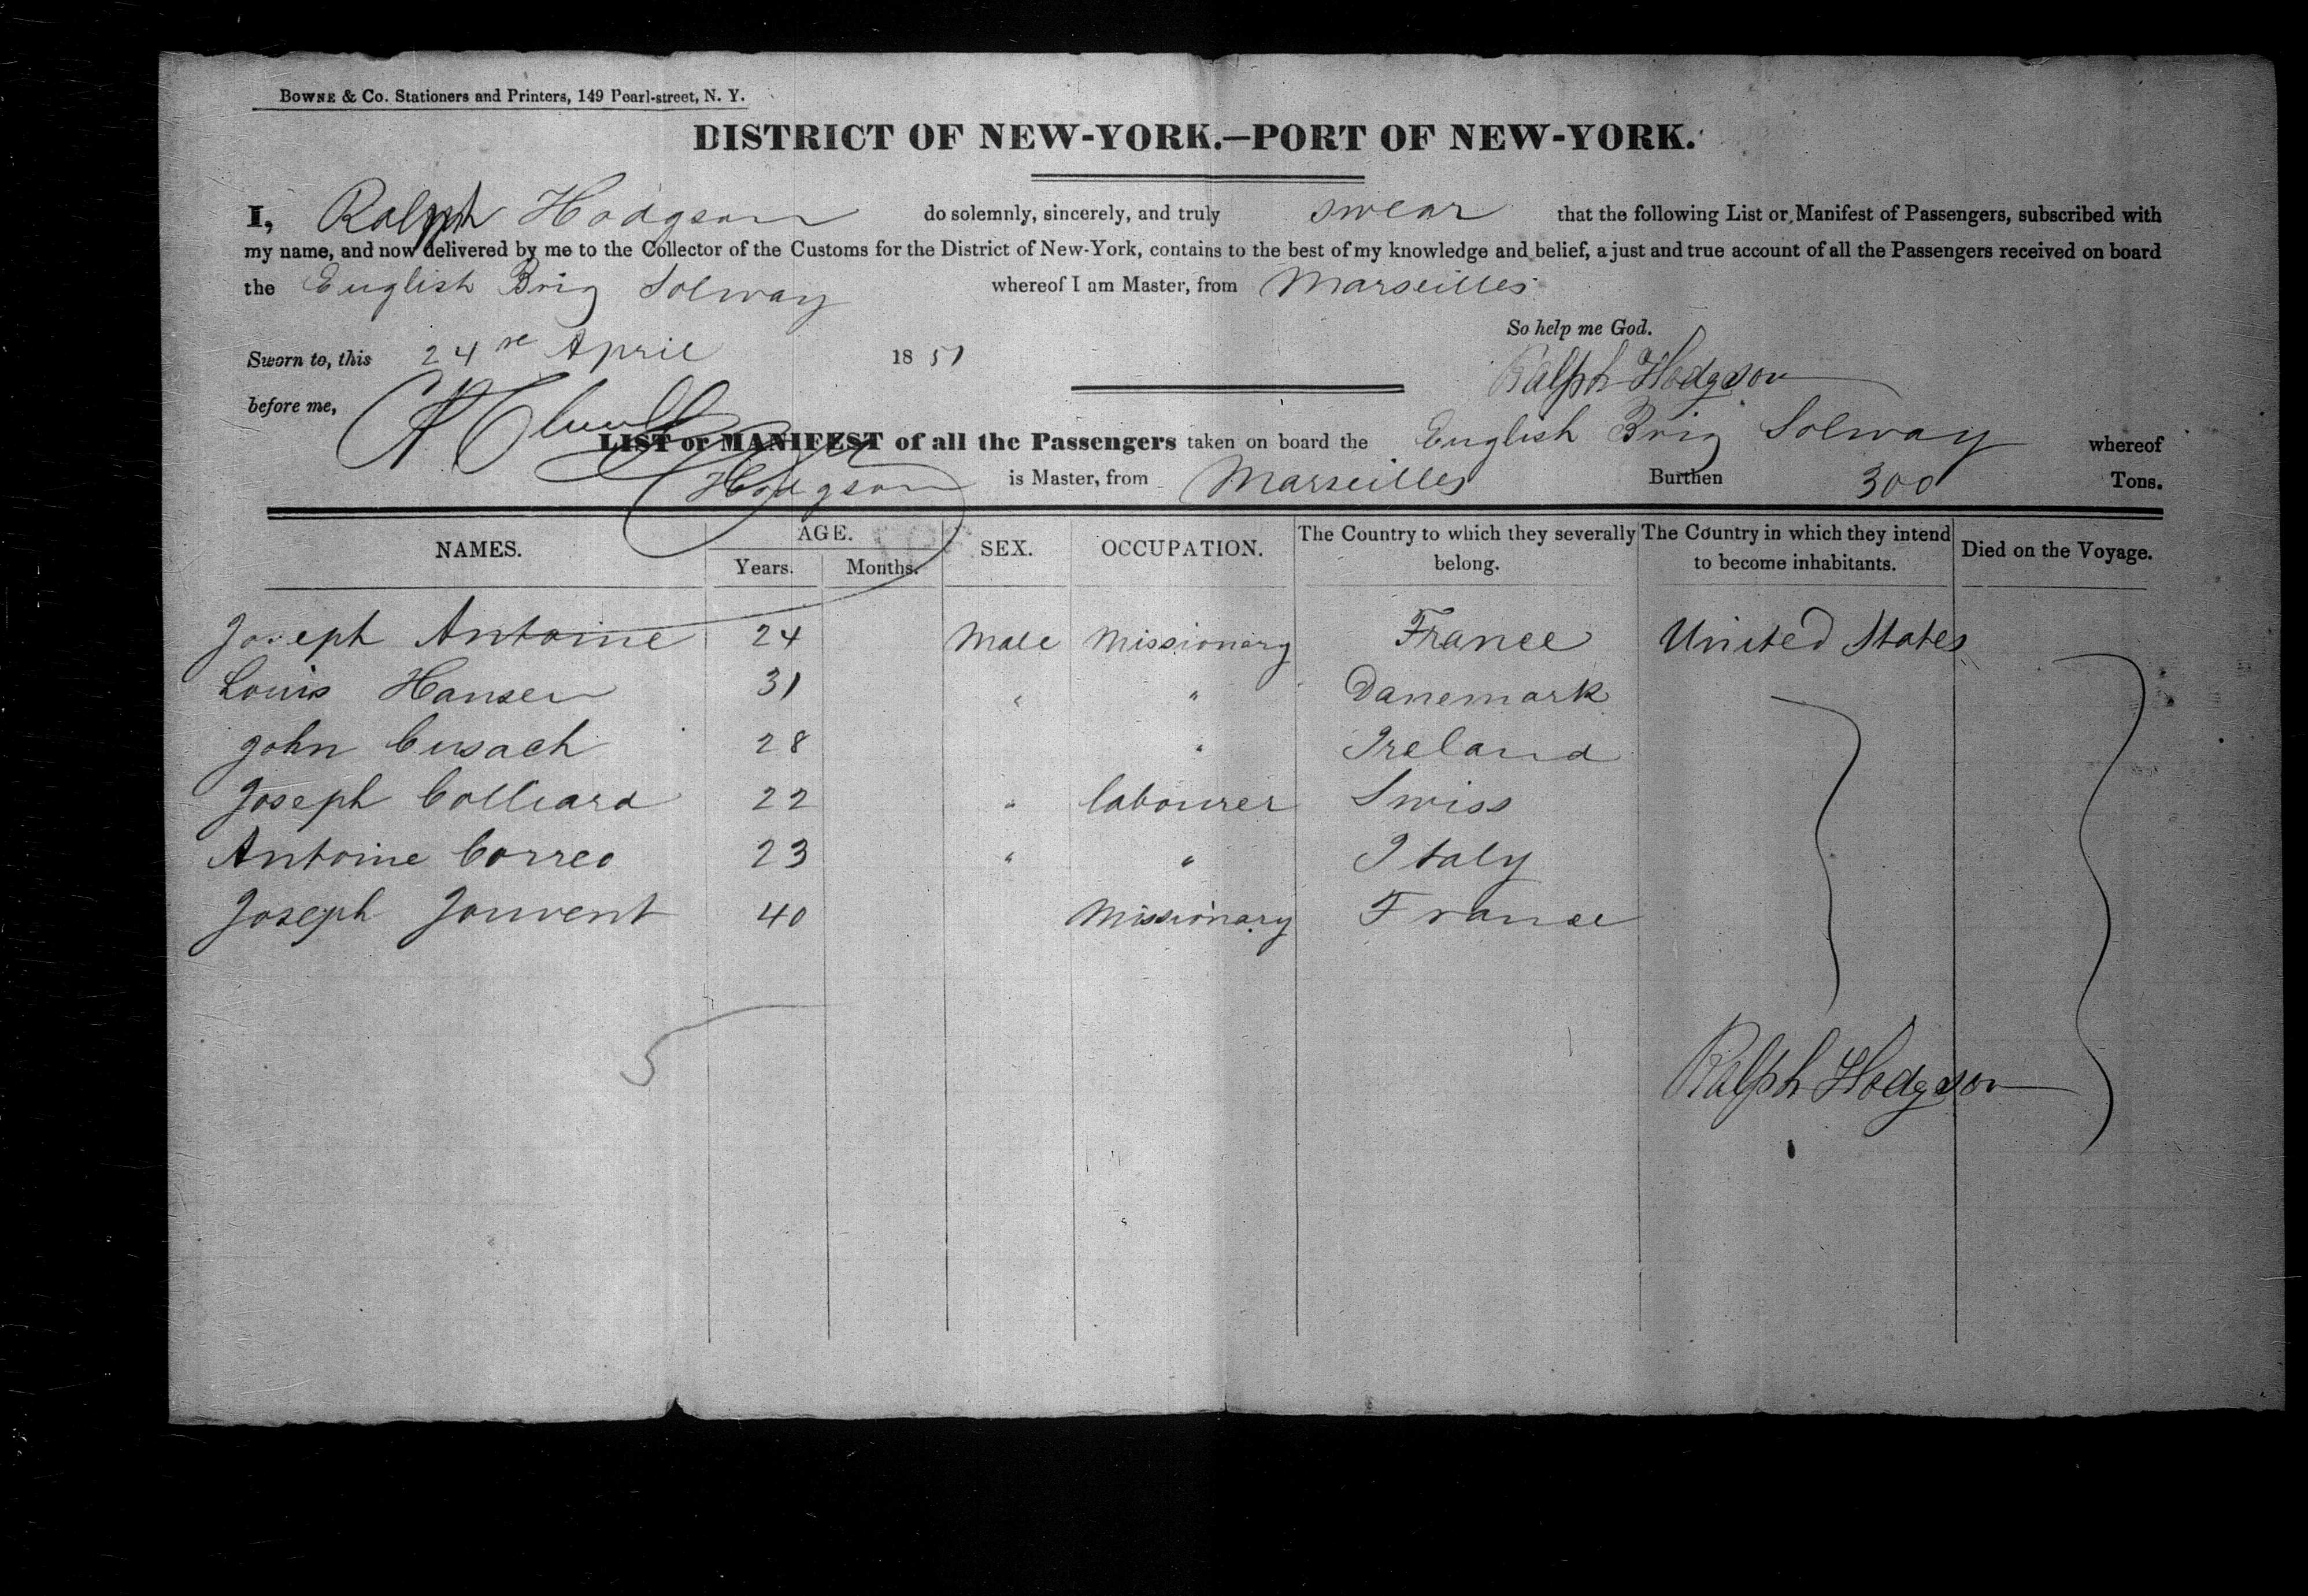 BOWNE & CO. Stationers and Printers, 149 Pearl-street, N. Y.
DISTRICT OF NEW-YORK.—PORT OF NEW-YORK.
I, Ralph Hodgson do solemnly, sincerely, and truly swear that the following List or Manifest of Passengers, subscribed with
my name, and now delivered by me to the Collector of the Customs for the District of New-York, contains to the best of my knowledge and belief, a just and true account of all the Passengers received on board
the English Brig Solway whereof I am Master, from Marseilles
So help me God.
Sworn to, this 24 April 1851
Ralph Hodgson
before me,
LIST or MANIFEST of all the Passengers taken on board the English Brig Solway whereof
Hodgson is Master, from Marseilles Burthen 300 Tons.
NAMES. AGE. Years. Months. SEX. OCCUPATION. The Country to which they severally belong. The Country in which they intend to become inhabitants. Died on the Voyage.
Joseph Antoine 24 Male Missionary France United States
Louis Hansen 31 " " Danemark
John Cusach 28 " Ireland
Joseph Colliard 22 " labourer Swiss
Antoine Correo 23 " " Italy
Joseph Jouvent 40 Missionary France
5
Ralph Hodgson